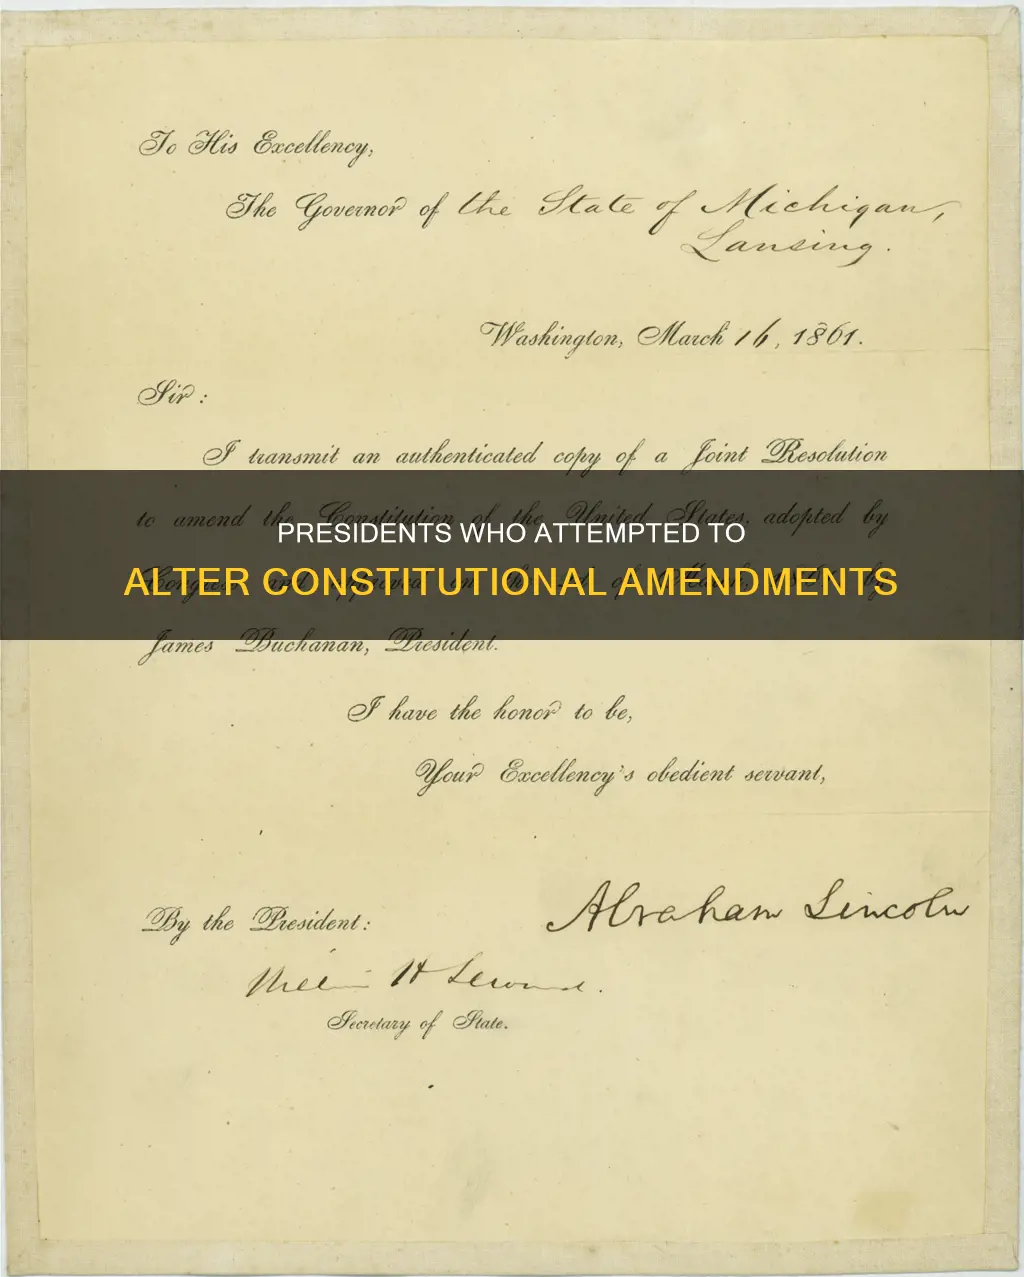 To His Excellency,
The Governor of the State of Michigan,
Lansing.
Washington, March 16, 1861.
Sir:
I transmit an authenticated copy of a Joint Resolution
to amend the Constitution of the United States, adopted by
PRESIDENTS WHO ATTEMPTED TO
ALTER CONSTITUTIONAL AMENDMENTS
James Buchanan, President.
I have the honor to be,
Your Excellency's obedient servant,
Abraham Lincoln
By the President:
William H Seward.
Secretary of State.